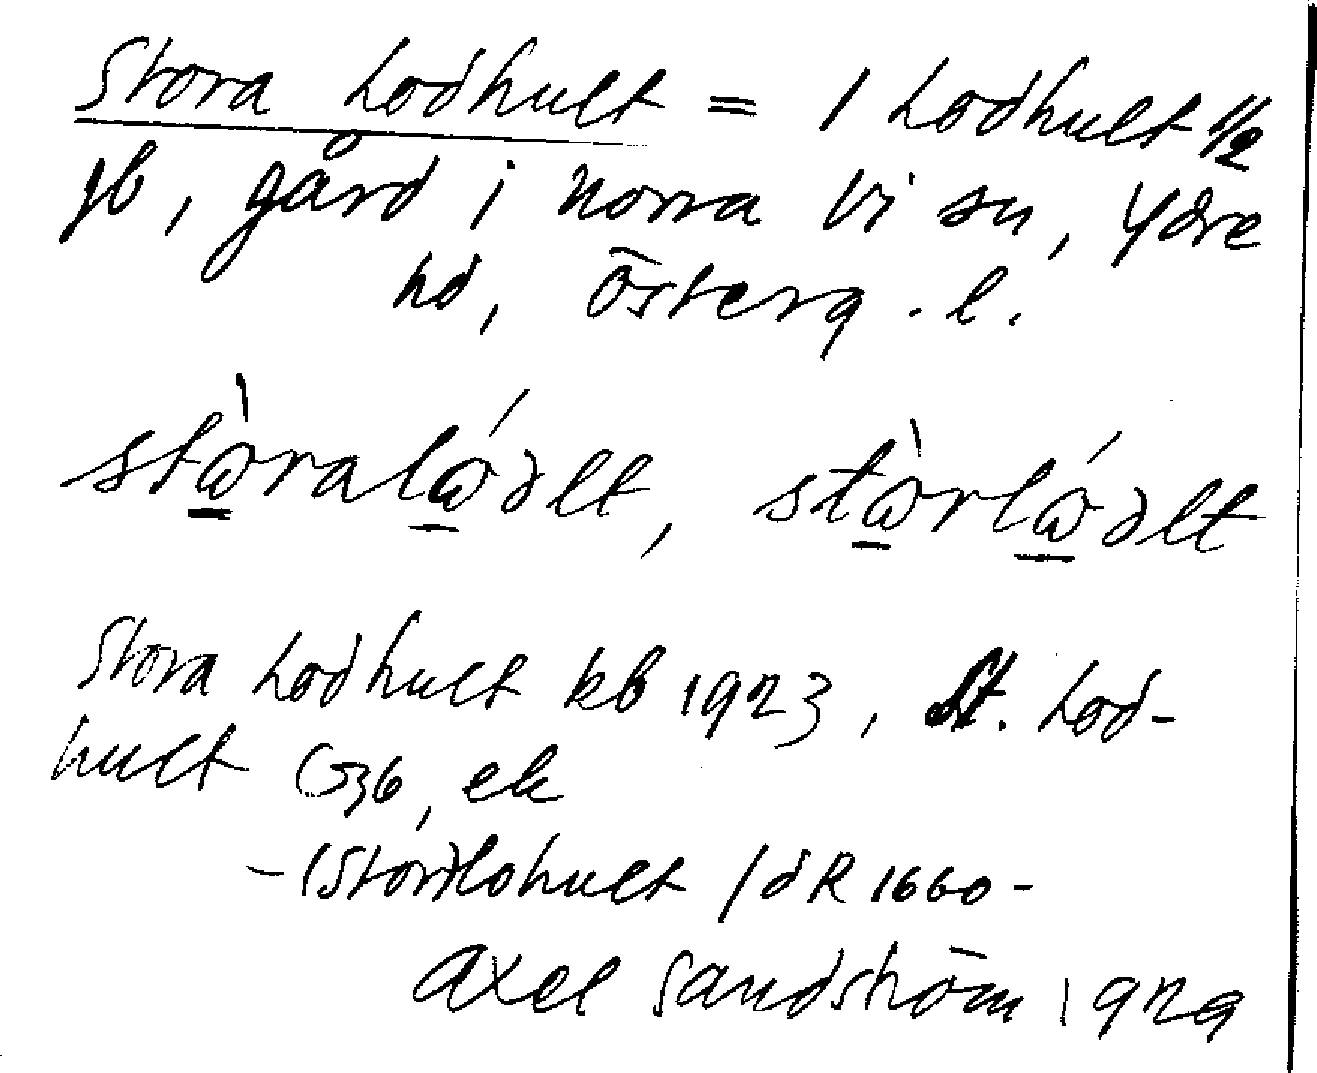 Stora Lodhult = 1 Lodhult 1/2
jb, gård i Norra Vi sn, Ydre
hd, Österg. l.
stòralódəlt, stòrlódəlt
Stora Lodhult kb 1923, St. Lod-
hult G36, ek
-(Stor)lohult JdR 1660-
Axel Sandström 1929